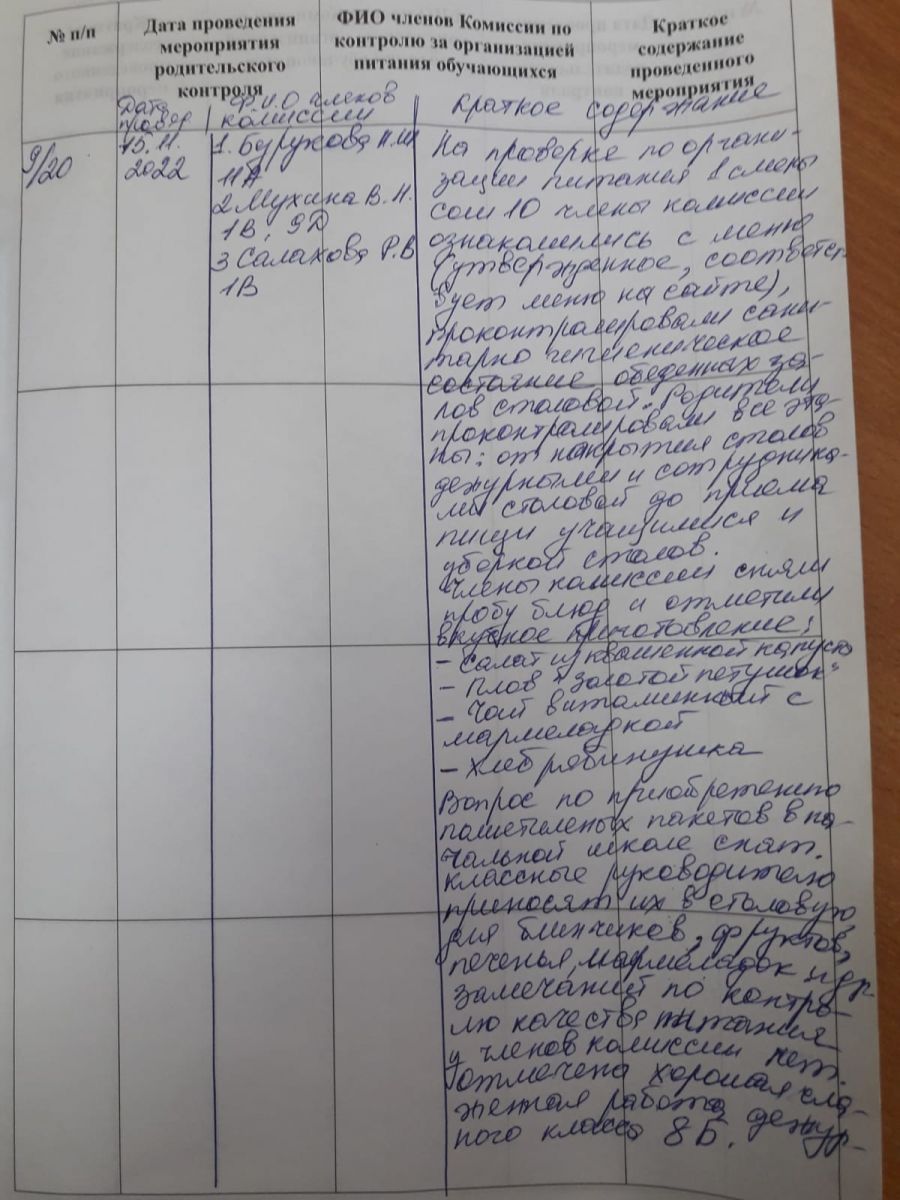 № п/п
Дата проведения
мероприятия
родительского
контроля
ФИО членов Комиссии по
контролю за организацией
питания обучающихся
Краткое
содержание
проведенного
мероприятия
Дата
провер
Ф.И.О членов
комиссии
Краткое содержание
9/20
15.11.
2022
1. Бурукова Н.Ш
11А
2 Мухина В.Н.
1В, 9Д
3 Салахова Р.В
1В
На проверке по органи-
зации питания 1 смены
сош 10 члены комиссии
ознакомились с меню
(утвержденное, соответст
вует меню на сайте),
проконтролировали сани-
тарно гигиеническое
состояние обеденных за-
лов столовой. Родители
проконтролировали все эта-
пы: от накрытия столов
дежурными и сотрудника-
ми столовой до приема
пищи учащимися и
уборкой столов.
Члены комиссии сняли
пробу блюд и отметили
вкусное приготовление:
- Салат из квашенной капусты
- Плов "Золотой петушок"
- Чай витаминный с
мармеладкой
- Хлеб рябинушка
Вопрос по приобретению
полиэтиленых пакетов в на-
чальной школе снят.
классные руководители
приносят их в столовую
для блинчиков, фруктов,
печенья, мармеладок и др.
Замечаний по контро-
лю качества питания
у членов комиссии нет.
Отмечена хорошая сла-
женная работа дежур-
ного класса 8Б.